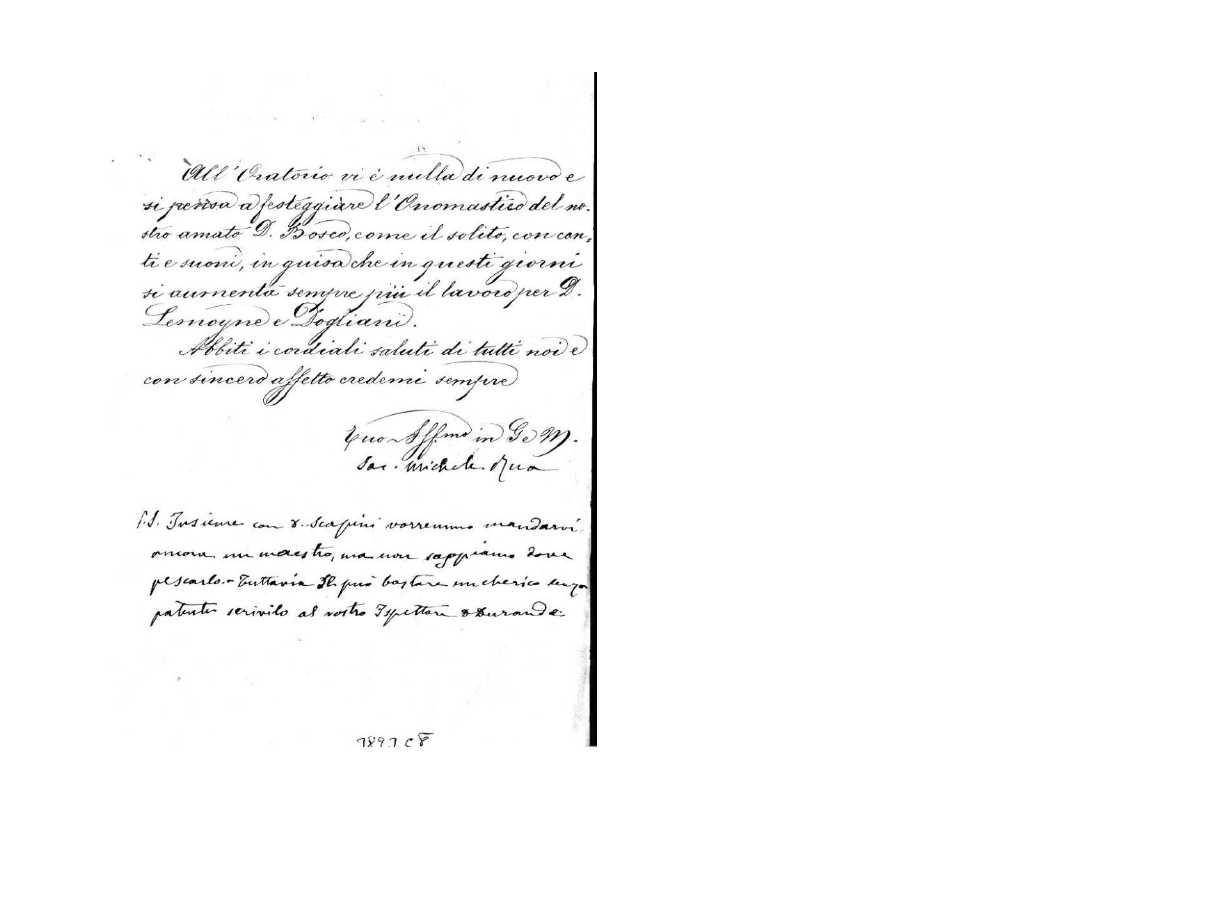 All'Oratorio vi è nulla di nuovo e
si pensa a festeggiare l'Onomastico del no-
stro amato D. Bosco, come il solito, con can-
ti e suoni, in guisa che in questi giorni
si aumenta sempre più il lavoro per D.
Lemoyne e Dogliani.
Abbiti i cordiali saluti di tutti noi e
con sincero affetto credemi sempre
Tuo Aff.mo in G e M.
Sac. Michele Rua
P.S. Insieme con D. Scapini vorremmo mandarvi
ancora un maestro, ma non sappiamo dove
pescarlo. - Tuttavia può bastare un cherico senza
patente scrivilo al vostro Ispettore D Durando.